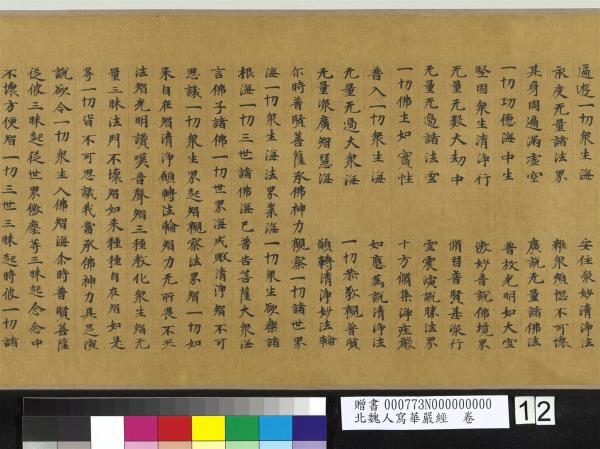 遍遊一切衆生海 安住衆妙清淨法
永度无量諸法界 離衆煩惱不可壞
其身周遍滿虛空 廣說无量諸佛法
一切功德海中生 普放光明如大雲
堅固衆生清淨行 微妙音說佛境界
无量无數大劫中 脩習普賢甚深行
无量无邊諸法雲 雲震演說勝法界
一切佛土如實性 十方脩集淨莊嚴
普入一切衆生海 如應爲說清淨法
无量无邊大衆海 一切恭敬觀普賢
无量深廣智慧海 願轉清淨妙法輪
尒時普賢菩薩承佛神力觀察一切諸世界
海一切衆生海法界業海一切衆生欲樂諸
根海一切三世諸佛海已普告菩薩大衆海
言佛子諸佛一切世界海成敗清淨智不可
思議一切衆生界起智觀察法界智一切如
來自在智清淨願轉法輪智力无所畏不共
法智光明讚嘆音聲智三種教化衆生智无
量三昧法門不壞智如來種種自在智如是
等一切皆不可思議我當承佛神力具足演
說欲令一切衆生入佛智海尒時普賢菩薩
從彼三昧起從世界微塵等三昧起念念中
不壞方便智一切三世三昧起時彼一切諸
贈書 000773N000000000
北魏人寫華嚴經 卷
12